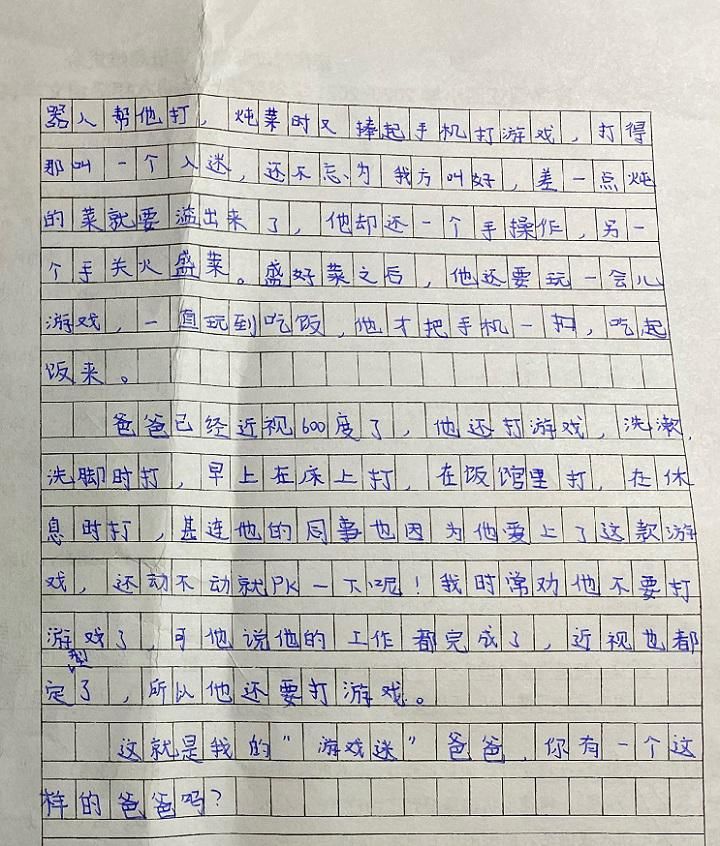 器人帮他打，炖菜时又捧起手机打游戏，打得
那叫一个入迷，还不忘为我方叫好，差一点炖
的菜就要溢出来了，他却还一个手操作，另一
个手关火盛菜。盛好菜之后，他还要玩一会儿
游戏，一直玩到吃饭，他才把手机一扔，吃起
饭来。
爸爸已经近视600度了，他还打游戏，洗漱，
洗脚时打，早上在床上打，在饭馆里打，在休
息时打，甚连他的同事也因为他爱上了这款游
戏，还动不动就PK一下呢！我时常劝他不要打
游戏了，可他说他的工作都完成了，近视也都
定型了，所以他还要打游戏。
这就是我的"游戏迷"爸爸，你有一个这
样的爸爸吗？